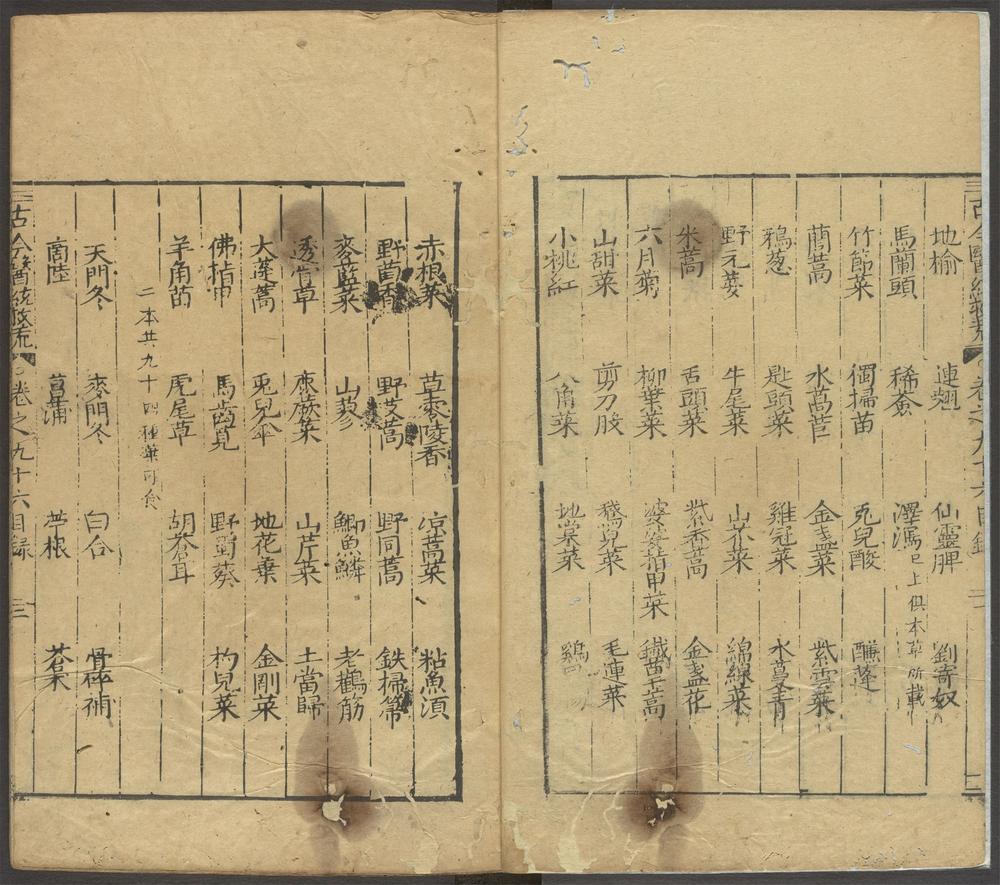 地榆 連翹 仙靈脾 劉寄奴
馬蘭頭 稀薟 澤瀉 已上俱本草所載
竹節菜 獨掃苗 兎兒酸 䗪蓬
蔄蒿 水萵苣 金盞菜 紫雲菜
鴉葱 匙頭菜 雞冠菜 水蔓青
野元荽 牛尾菜 山芥菜 綿絲菜
米蒿 舌頭菜 紫香蒿 金盞花
六月菊 柳葉菜 婆婆指甲菜 鐵桿蒿
山甜菜 剪刀股 鵝兒菜 毛連菜
小桃紅 八角菜 地棠菜 鷄
古今醫統 卷之九十六目録 二
赤根菜 草零陵香 凉蒿菜 粘魚須
野茴香 野艾蒿 野同蒿 鉄掃箒
麥藍菜 山蓼 鯽魚鱗 老鸛筋
透骨草 康蕨菜 山芹菜 土當歸
大蓬蒿 兎兒傘 地花葉 金剛菜
佛指甲 馬齒莧 野蜀葵 杓兒菜
羊角苗 虎尾草 胡蒼耳
二本共九十四種葉可食
天門冬 麥門冬 百合 骨碎補
商陸 菖蒲 茅根
古今醫統 卷之九十六目録 三